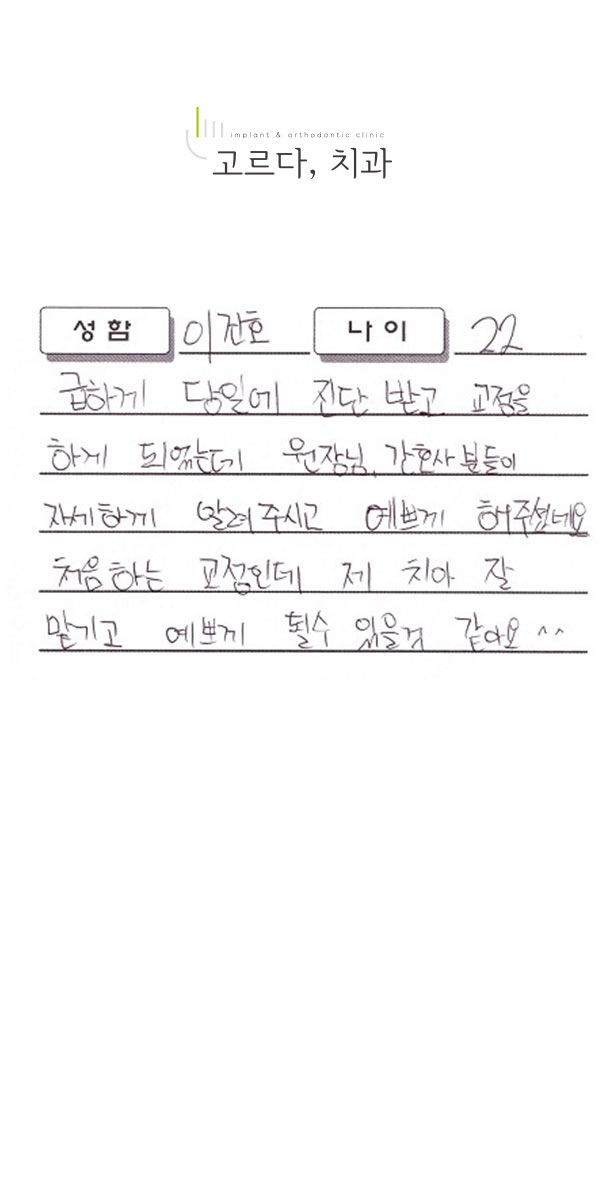 implant & orthodontic clinic
고르다, 치과
성 함 이건호 나 이 22
급하게 당일에 진단 받고 교정을
하게 되었는데 원장님, 간호사 분들이
자세하게 알려주시고 예쁘게 해주셨네요
처음하는 교정인데 제 치아 잘
맡기고 예쁘게 될수 있을것 같아요 ^^